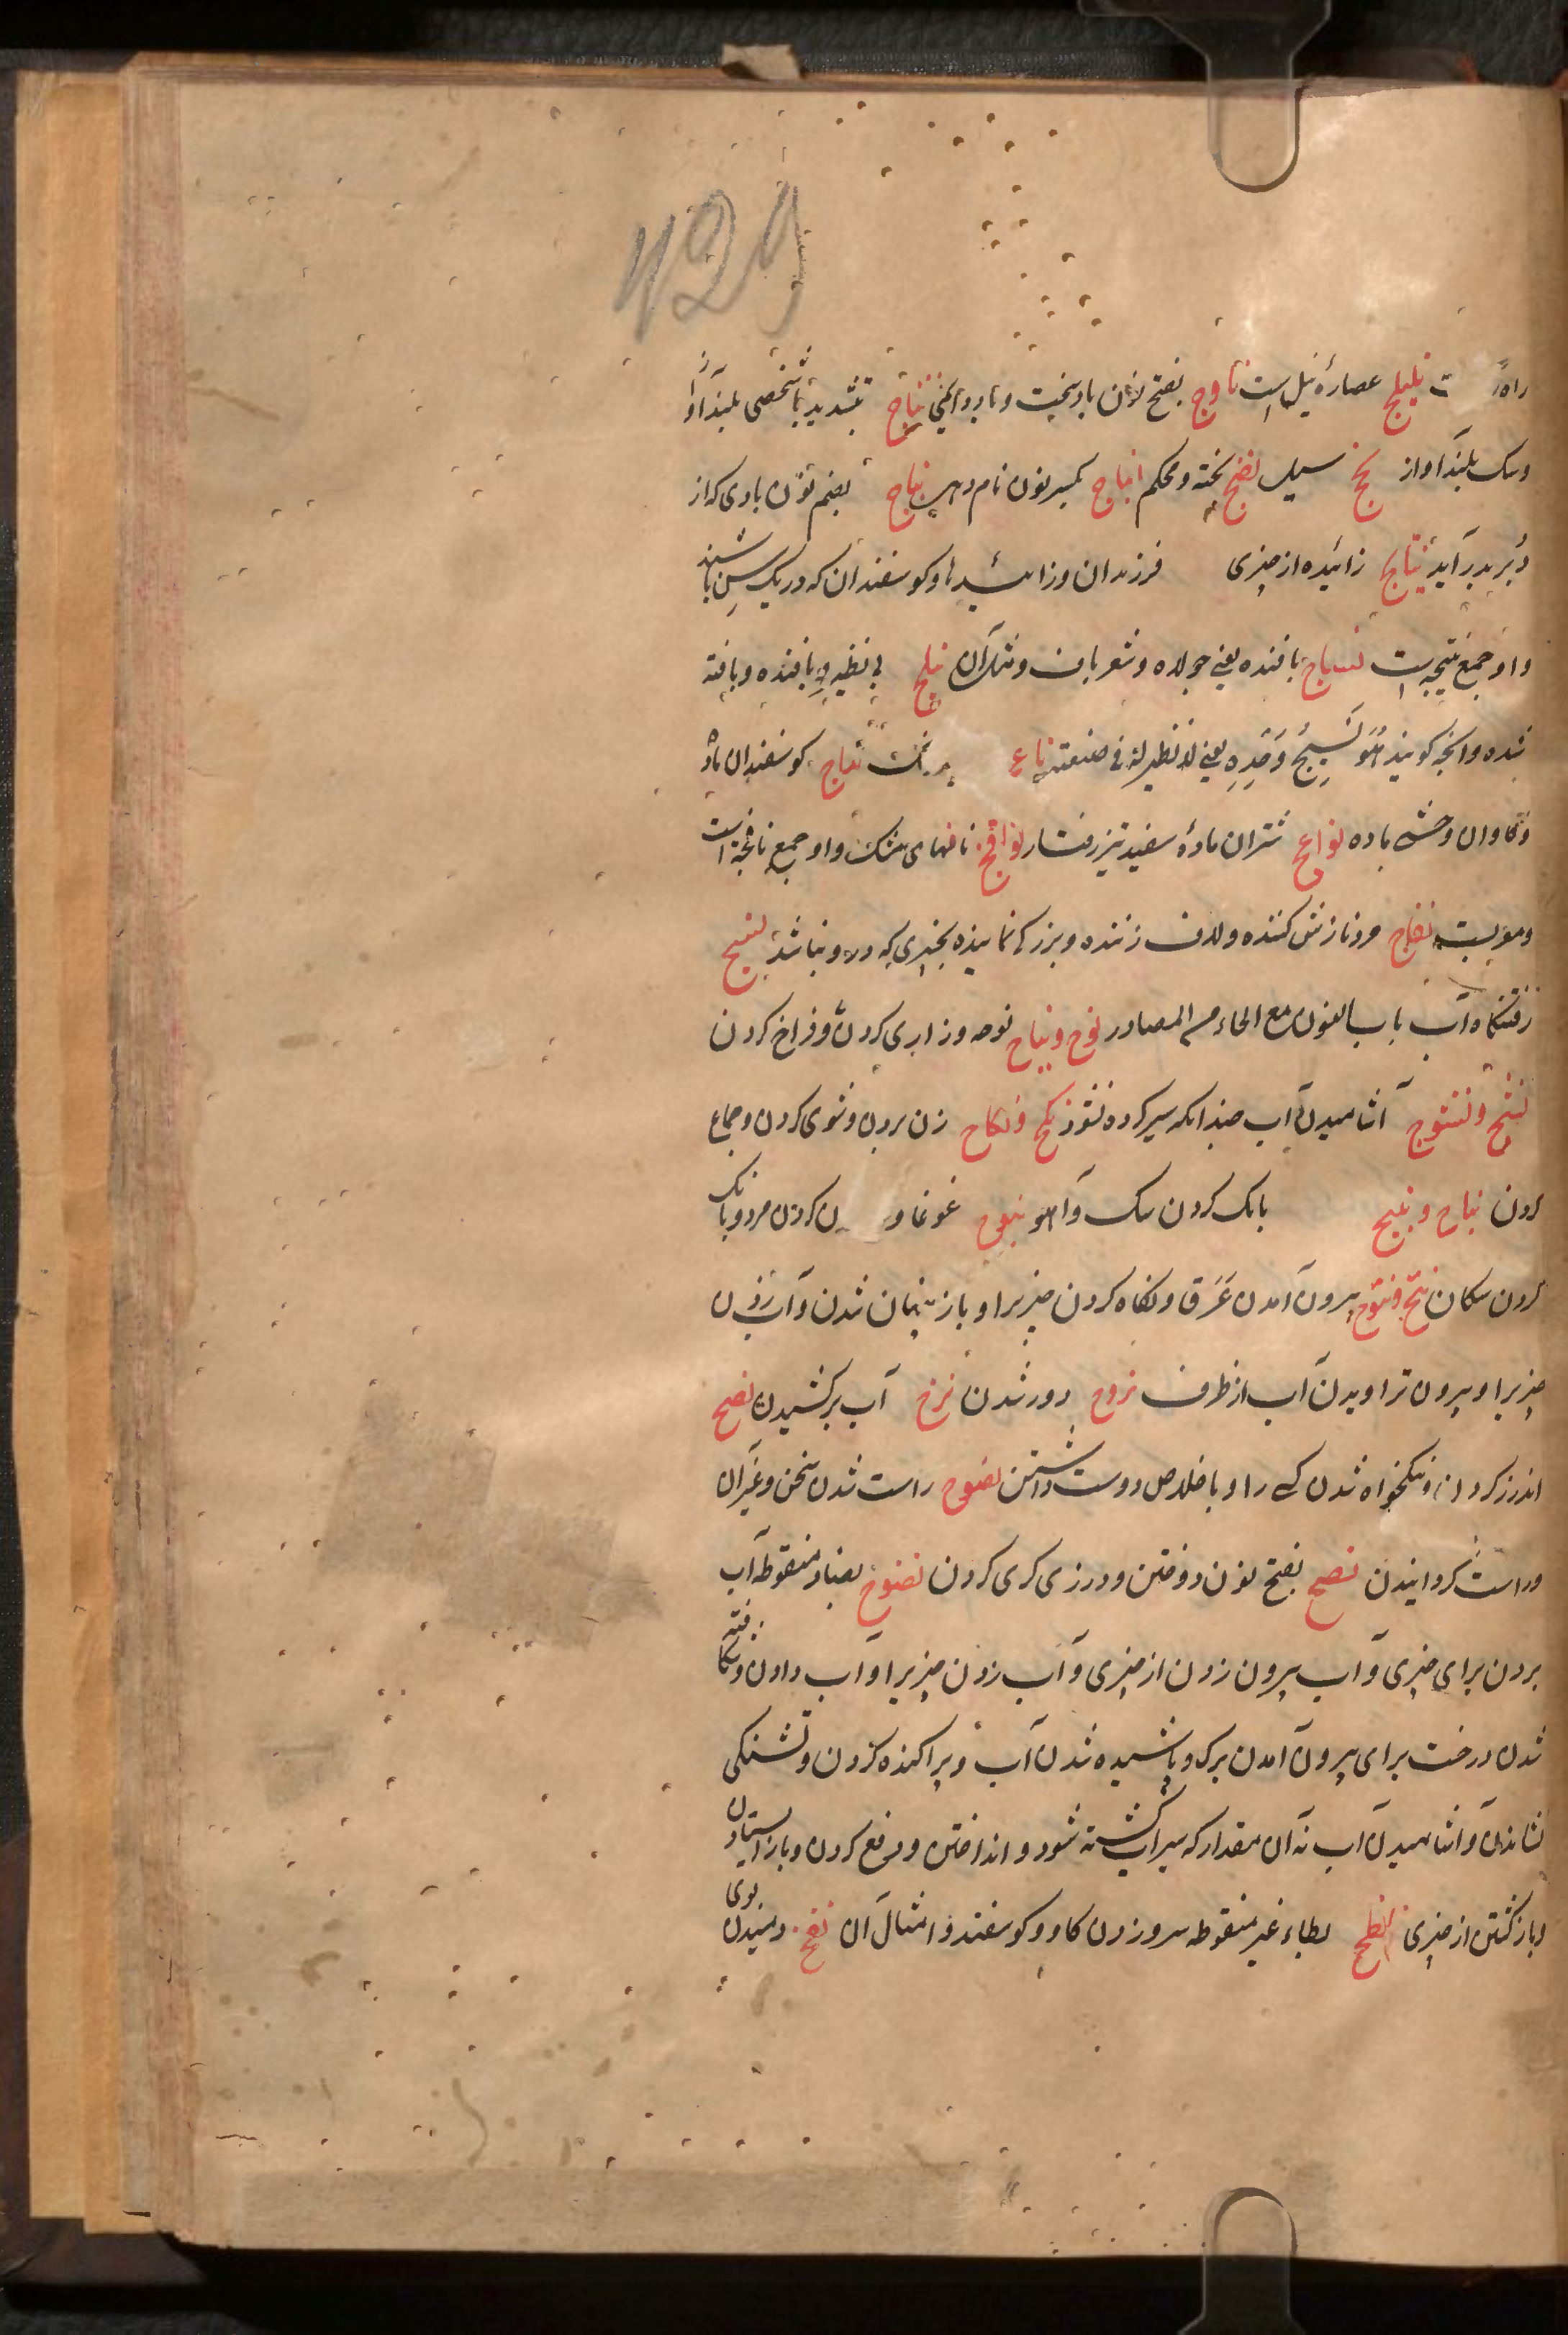 429
نیلیلج عصارهٔ نیل است ناوج بفتح نون باد سخت و نباج بتشدید با شخصی بلند آواز
و سک بلند آواز سیل نضج پخته و محکم انباج بکسر نون نام نباج بضم نون بادی که از
دبر بدر آید نتاج زائیده از چیزی فرزندان و کوسفندان که در یک سن باشند
و او جمع نتیجه است نساج بافنده یعنی جولاه و شعرباف و مثل آن بی نظیر و بافنده و بافته
شده و انچه کویند هُوَ نَسِیجُ وَحدِهِ یعنی لا نظیر له فی صنعته نعاج کوسفندان ماده
و کاوان وحشی ماده نواعج شتران مادهٔ سفید تیز رفتار نوافج نافهای مشک و او جمع نافجه است
نفاج مرد نازش کننده و لاف زننده و بزرکی نماینده بچیزی که در او نباشد نسیج
باب النون مع الحاء من المصادر نوح و نیاح نوحه و زاری کردن و فراخ کردن
نشح و نشوح آشامیدن آب چندانکه سیر کرده نشود نکح و نکاح زن بردن و شوی کردن و جماع
کردن نباح و نبیح بانک کردن سک و آهو نبوح غوغا و کردن مرد و بانک
کردن سکان نتح و نتوح بیرون آمدن عَرَق و نکاه کردن چیزیرا و باز پنهان شدن و آب زدن
چیزیرا و بیرون تراویدن آب از ظرف نزوح دور شدن نزح آب برکشیدن نصح
اندرز کردن و نیکخواه شدن کسی را و با خلاص دوست داشتن نصوح راست شدن سخن و غیر آن
و راست کردانیدن نصح بفتح نون دوختن و درزی کری کردن نضوح بضاد منقوطه آب
بردن برای چیزی و آب بیرون زدن از چیزی و آب زدن چیزیرا و آب دادن و شکافته
شدن درخت برای بیرون آمدن برک و پاشیده شدن آب و پراکنده کردن و تشنکی
نشاندن و آشامیدن آب نه آن مقدار که سیراب کشته شود و انداختن و دفع کردن و باز استادن
و باز کشتن از چیزی نطح بطاء غیر منقوطه سرو زدن کاو و کوسفند و امثال آن نفح دمیدن بوی